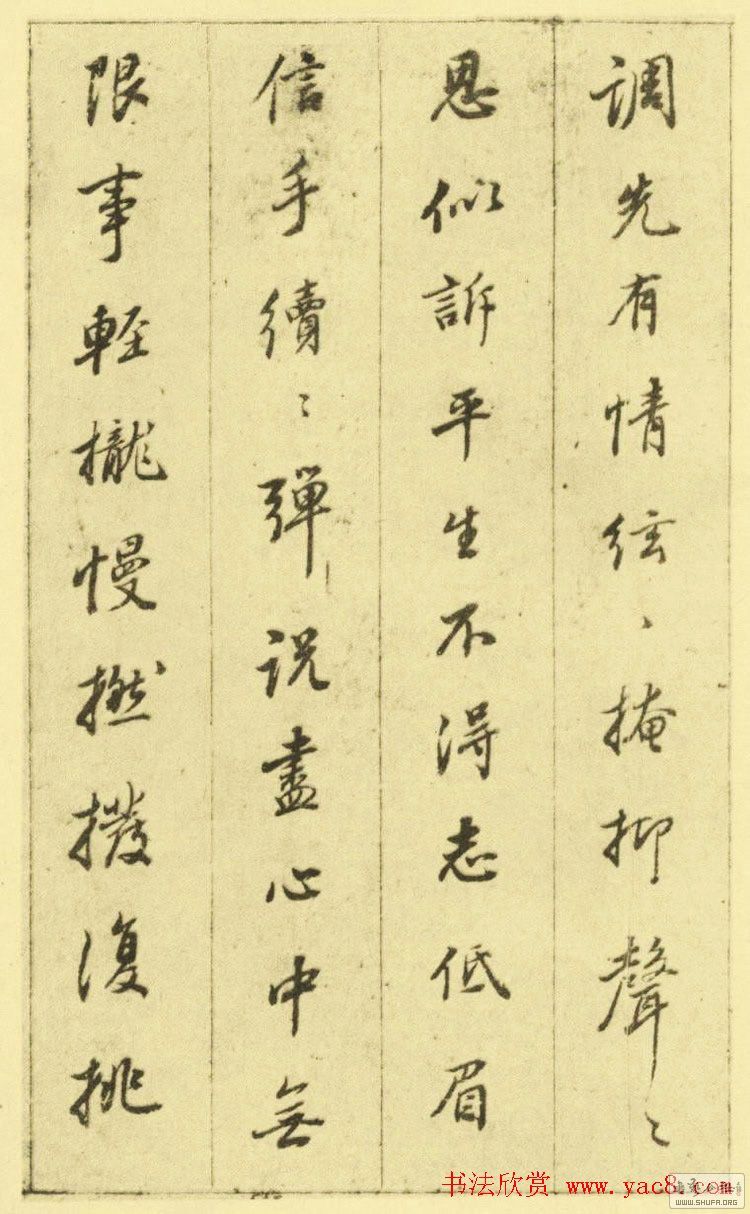 調先有情絃、掩抑聲〻
思似訴平生不得志低眉
信手續〻彈説盡心中無
限事輕攏慢撚撥復挑
书法欣赏 www.yac8.com
WWW.SHUFA.ORG